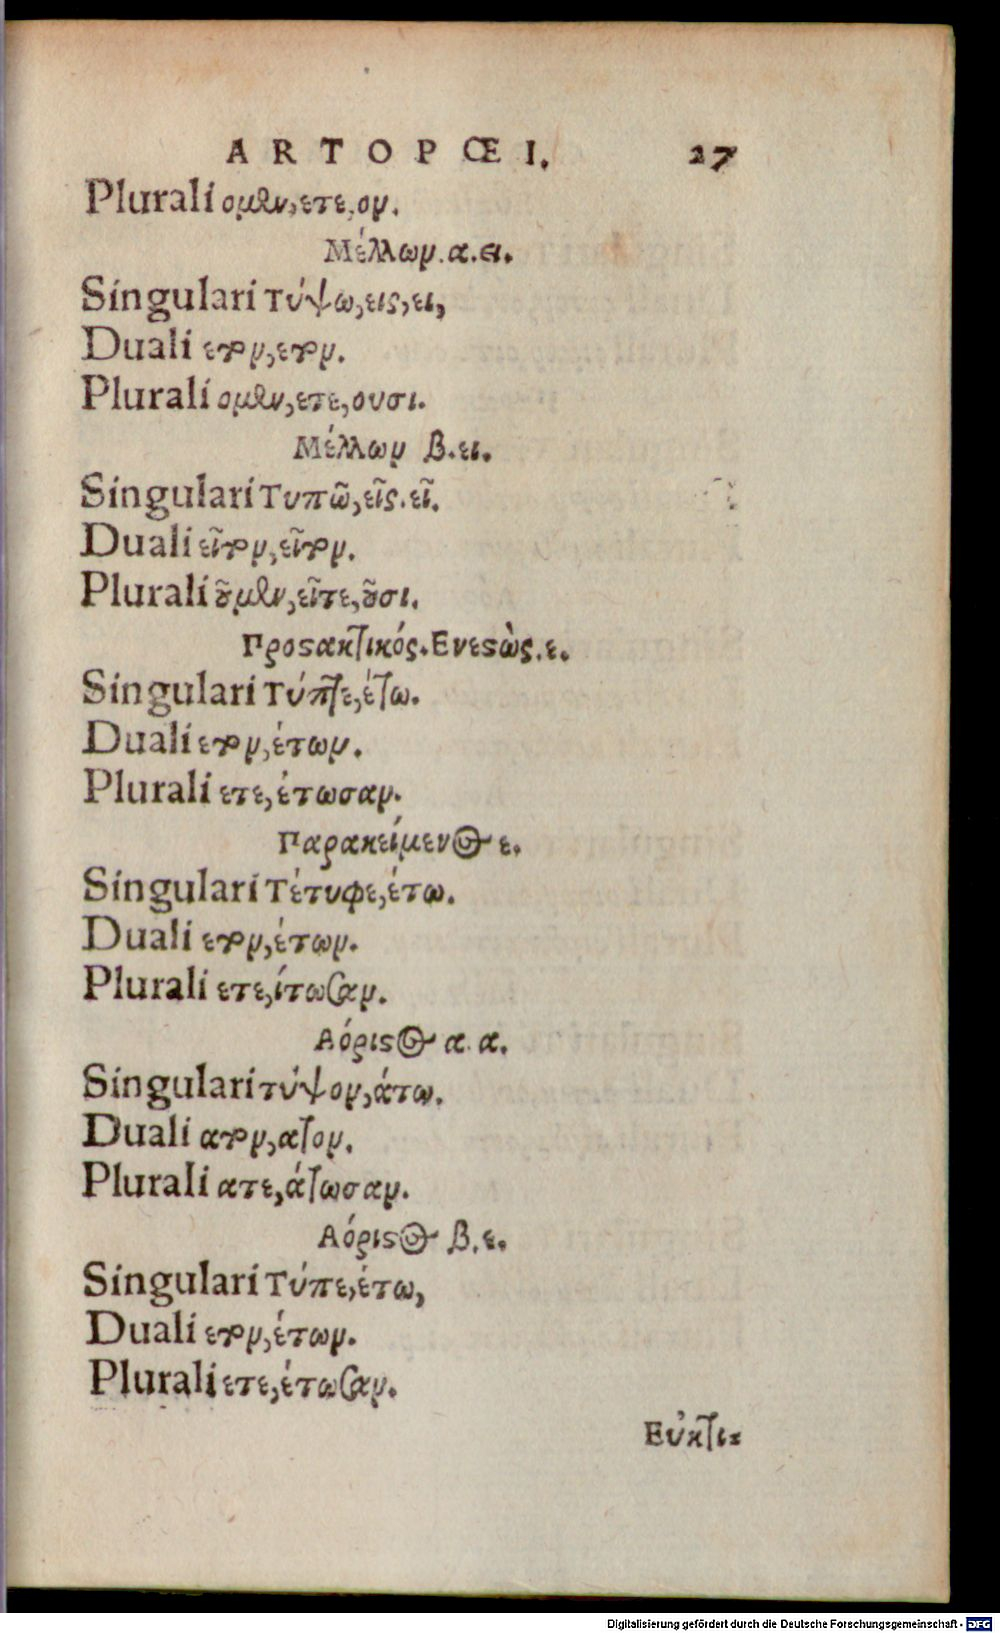 ARTOPŒI. 27
Plurali ομεν, ετε, ον.
Μέλλων. α. ει.
Singulari Τύψω, εις, ει,
Duali ετον, ετον.
Plurali ομεν, ετε, ουσι.
Μέλλων β. ει.
Singulari Τυπῶ, εῖς. εῖ.
Duali εῖτον, εῖτον.
Plurali οῦμεν, εῖτε, οῦσι.
Προστακτικός. Ενεστὼς. ε.
Singulari Τύπτε, έτω.
Duali ετον, έτων.
Plurali ετε, έτωσαν.
Παρακείμενος ε.
Singulari Τέτυφε, έτω.
Duali ετον, έτων.
Plurali ετε, ίτωσαν.
Αόριστος α. α.
Singulari τύψον, άτω.
Duali ατον, ατον.
Plurali ατε, άτωσαν.
Αόριστος β. ε.
Singulari Τύπε, έτω,
Duali ετον, έτων.
Plurali ετε, έτωσαν.
Εὐκτι-
Digitalisierung gefördert durch die Deutsche Forschungsgemeinschaft - DFG